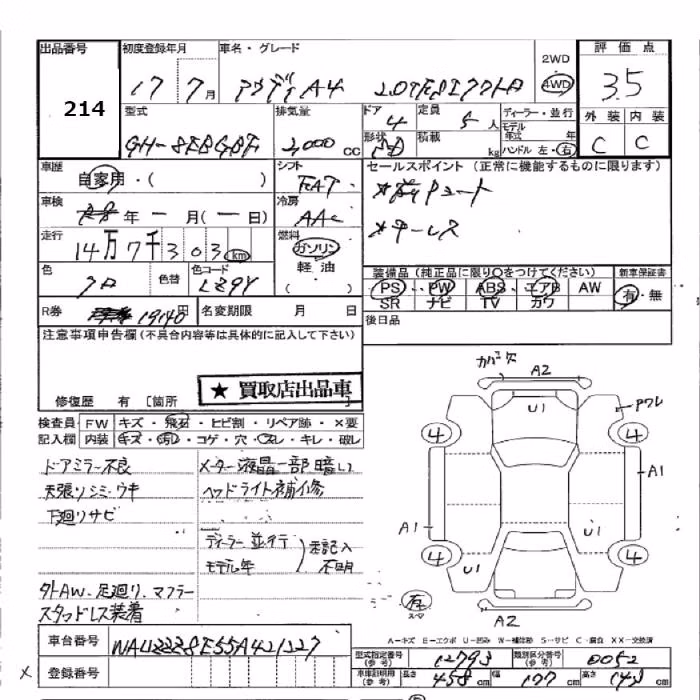 出品番号 初度登録年月 車名・グレード 2WD 評価点
214 17 7月 アウディA4 4WD 3.5
型式 排気量 ドア 定員 ディーラー・並行 外装 内装
2,000 cc 4 5人 モデル年式 年 C C
形状 積載 kg ハンドル 左・右
車歴 シフト セールスポイント(正常に機能するものに限ります)
自家用・( ) FAT
車検 冷房 キーレス
年 ー 月(ー日) AAC
走行 燃料
14万7千303km ガソリン
軽油
( )
色 色替 色コード 装備品(純正品に限り○をつけてください) 新車保証書
クロ LZ9Y PS PW ABS エアB AW 有・無
SR ナビ TV カワ
R券 19140円 名変期限 月 日 後日品
注意事項申告欄(不具合内容等は具体的に記入して下さい)
★買取店出品車
修復歴 有 [箇所 ]
検査員 FW キズ・飛石・ヒビ割・リペア跡・×要
記入欄 内装 キズ・汚れ・コゲ・穴・スレ・キレ・破レ
ドアミラー不良 メーター液晶一部暗い
天張りシミ・ウキ ヘッドライト補修
下廻りサビ
ディーラー並行 未記入
モデル年 不明
外トAW.足廻り.マフラー
スタッドレス装着
カバー欠 A2
U1
4 4
A1
A1 U1
4 4
U1
A2
A-キズ E-エクボ U-凹み W-補修跡 S-サビ C-腐食 XX-交換済
車台番号
登録番号
型式指定番号(参考) 12793 類別区分番号(参考) 0052
車庫証明用(参考) 長さ 458cm 幅 177cm 高さ 143cm